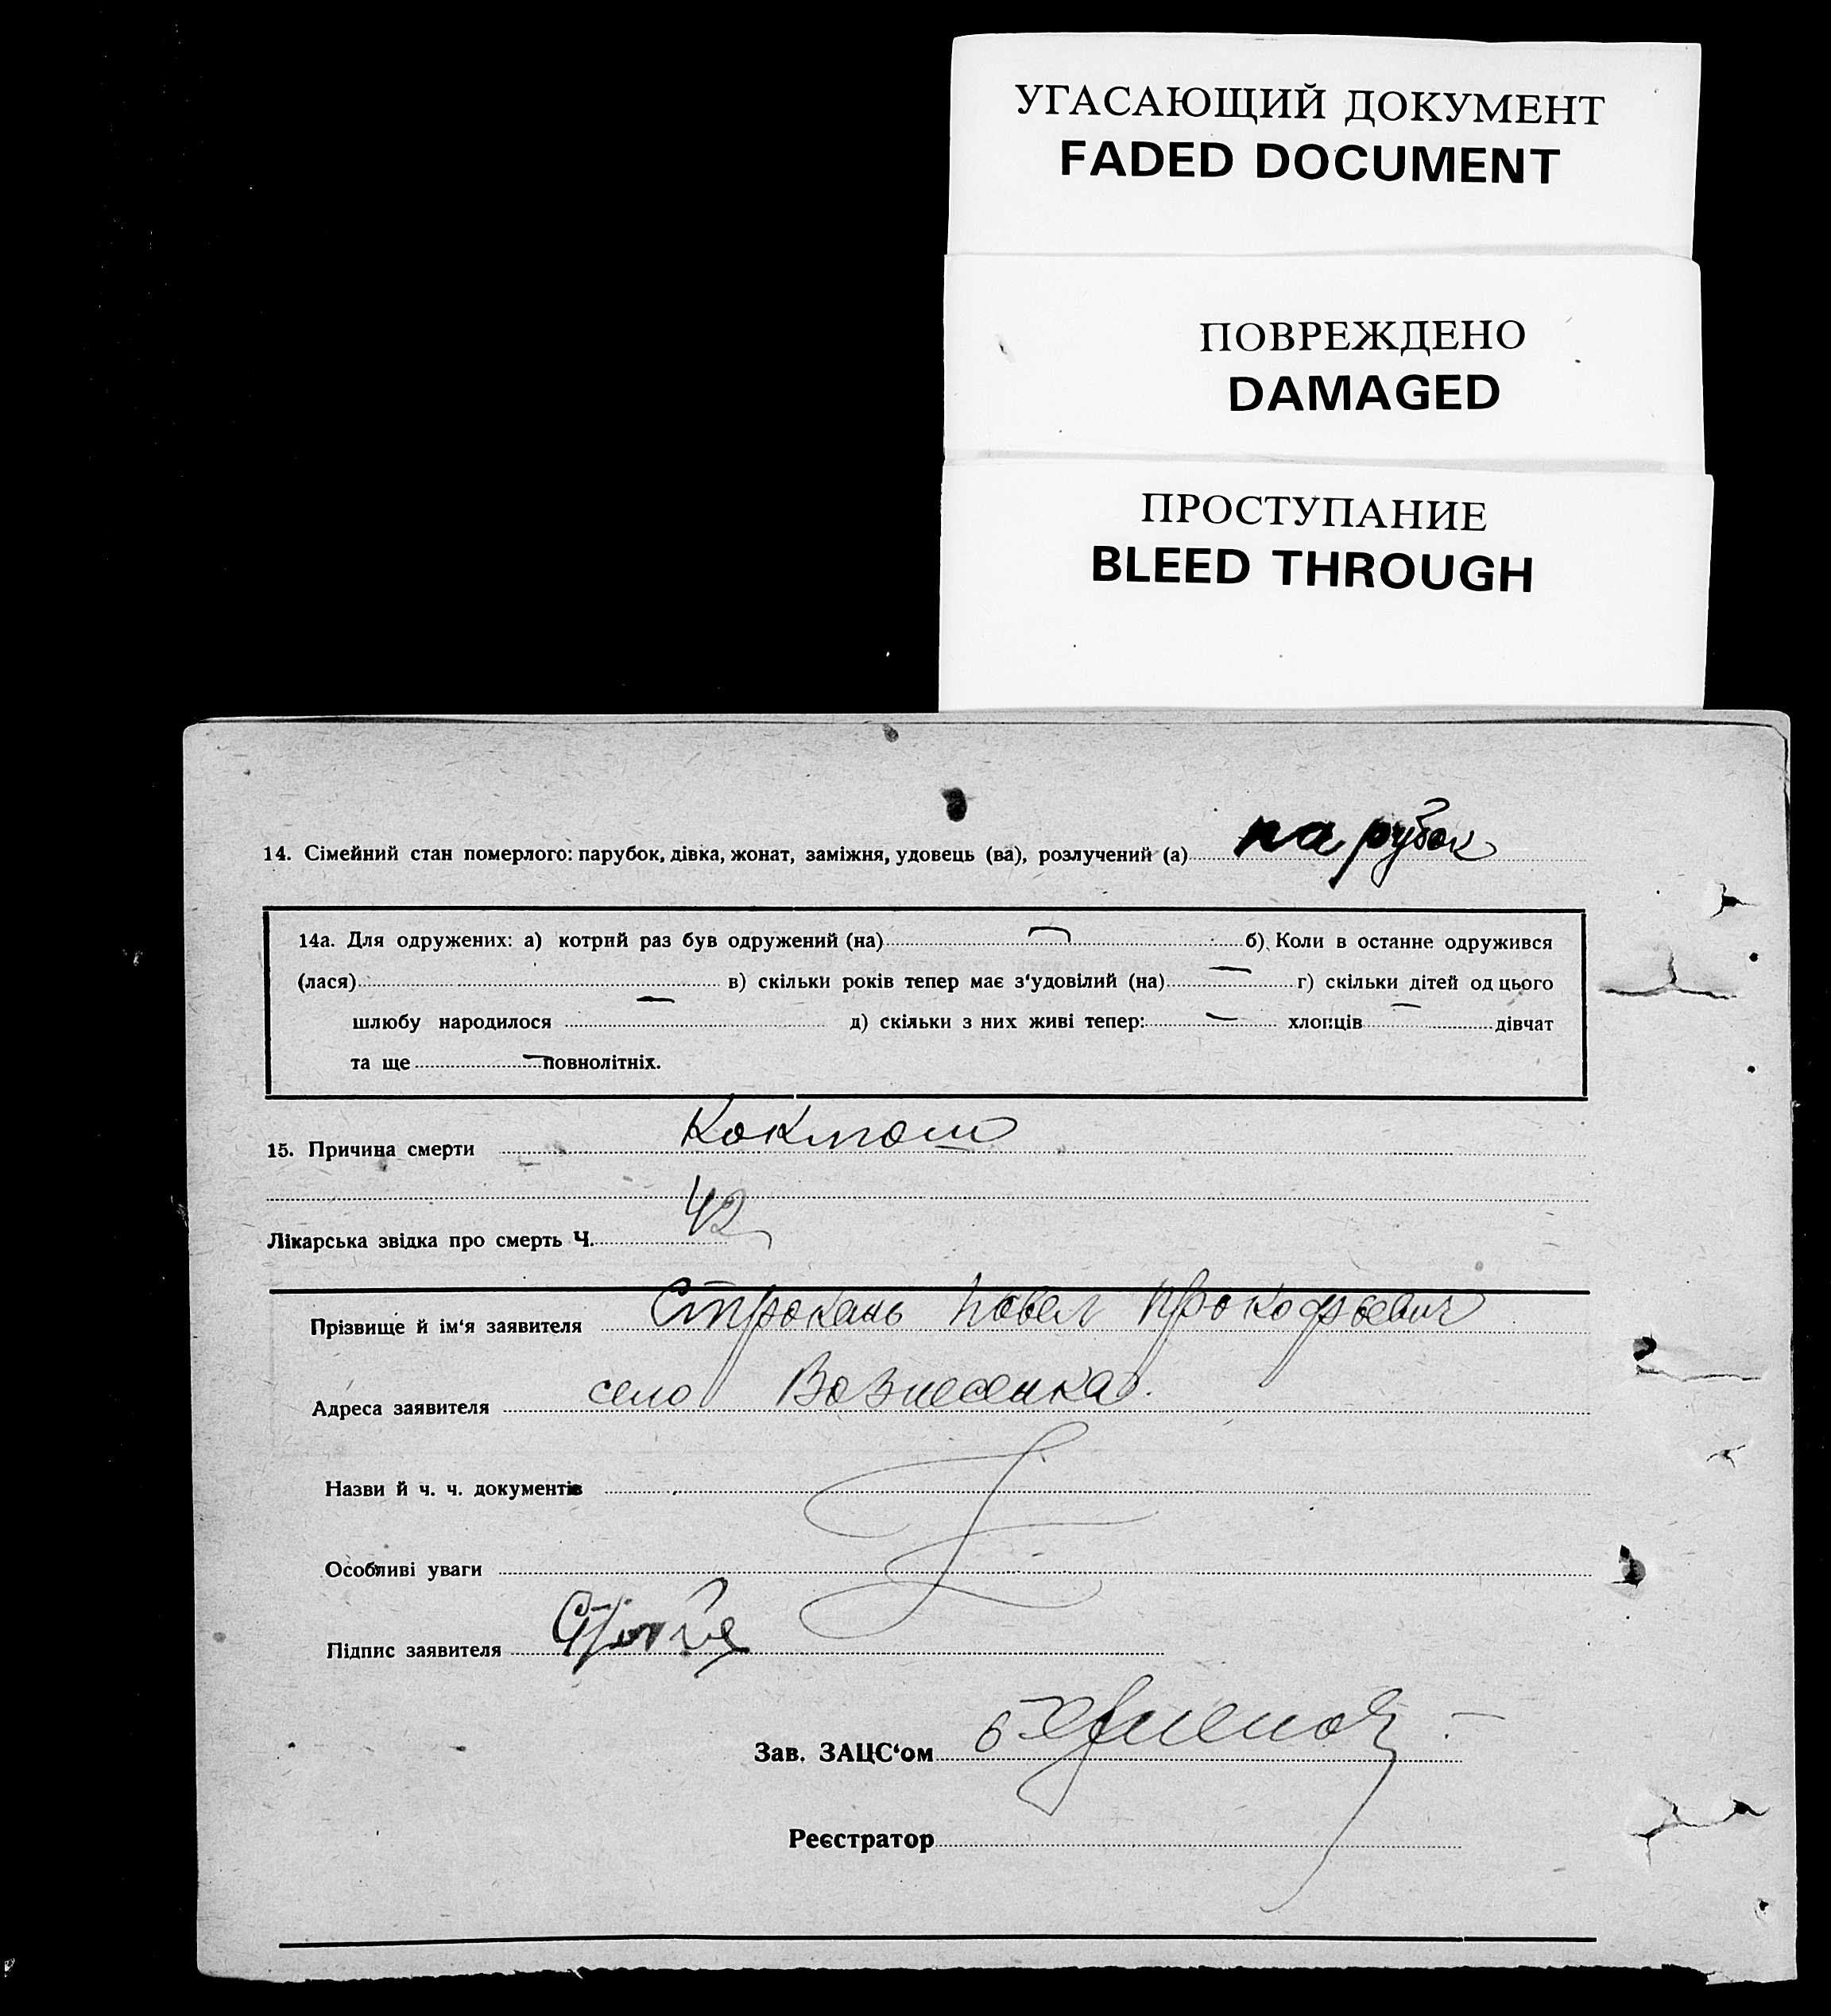 УГАСАЮЩИЙ ДОКУМЕНТ
FADED DOCUMENT
ПОВРЕЖДЕНО
DAMAGED
ПРОСТУПАНИЕ
BLEED THROUGH
14. Сімейний стан померлого: парубок, дівка, жонат, заміжня, удовець (ва), розлучений (а) парубок
14а. Для одружених: а) котрий раз був одружений (на) б) Коли в останне одружився
(лася) в) скільки років тепер має з'удовілий (на) г) скільки дітей од цього
шлюбу народилося д) скільки з них живі тепер: хлопців дівчат
та ще повнолітніх.
15. Причина смерти Коклюш
Лікарська звідка про смерть Ч. 42
Прізвище й ім'я заявителя Строкань Павел Прокофьевич
Адреса заявителя село Вознесенка
Назви й ч. ч. документів
Особливі уваги
Підпис заявителя
Зав. ЗАЦС'ом
Реєстратор